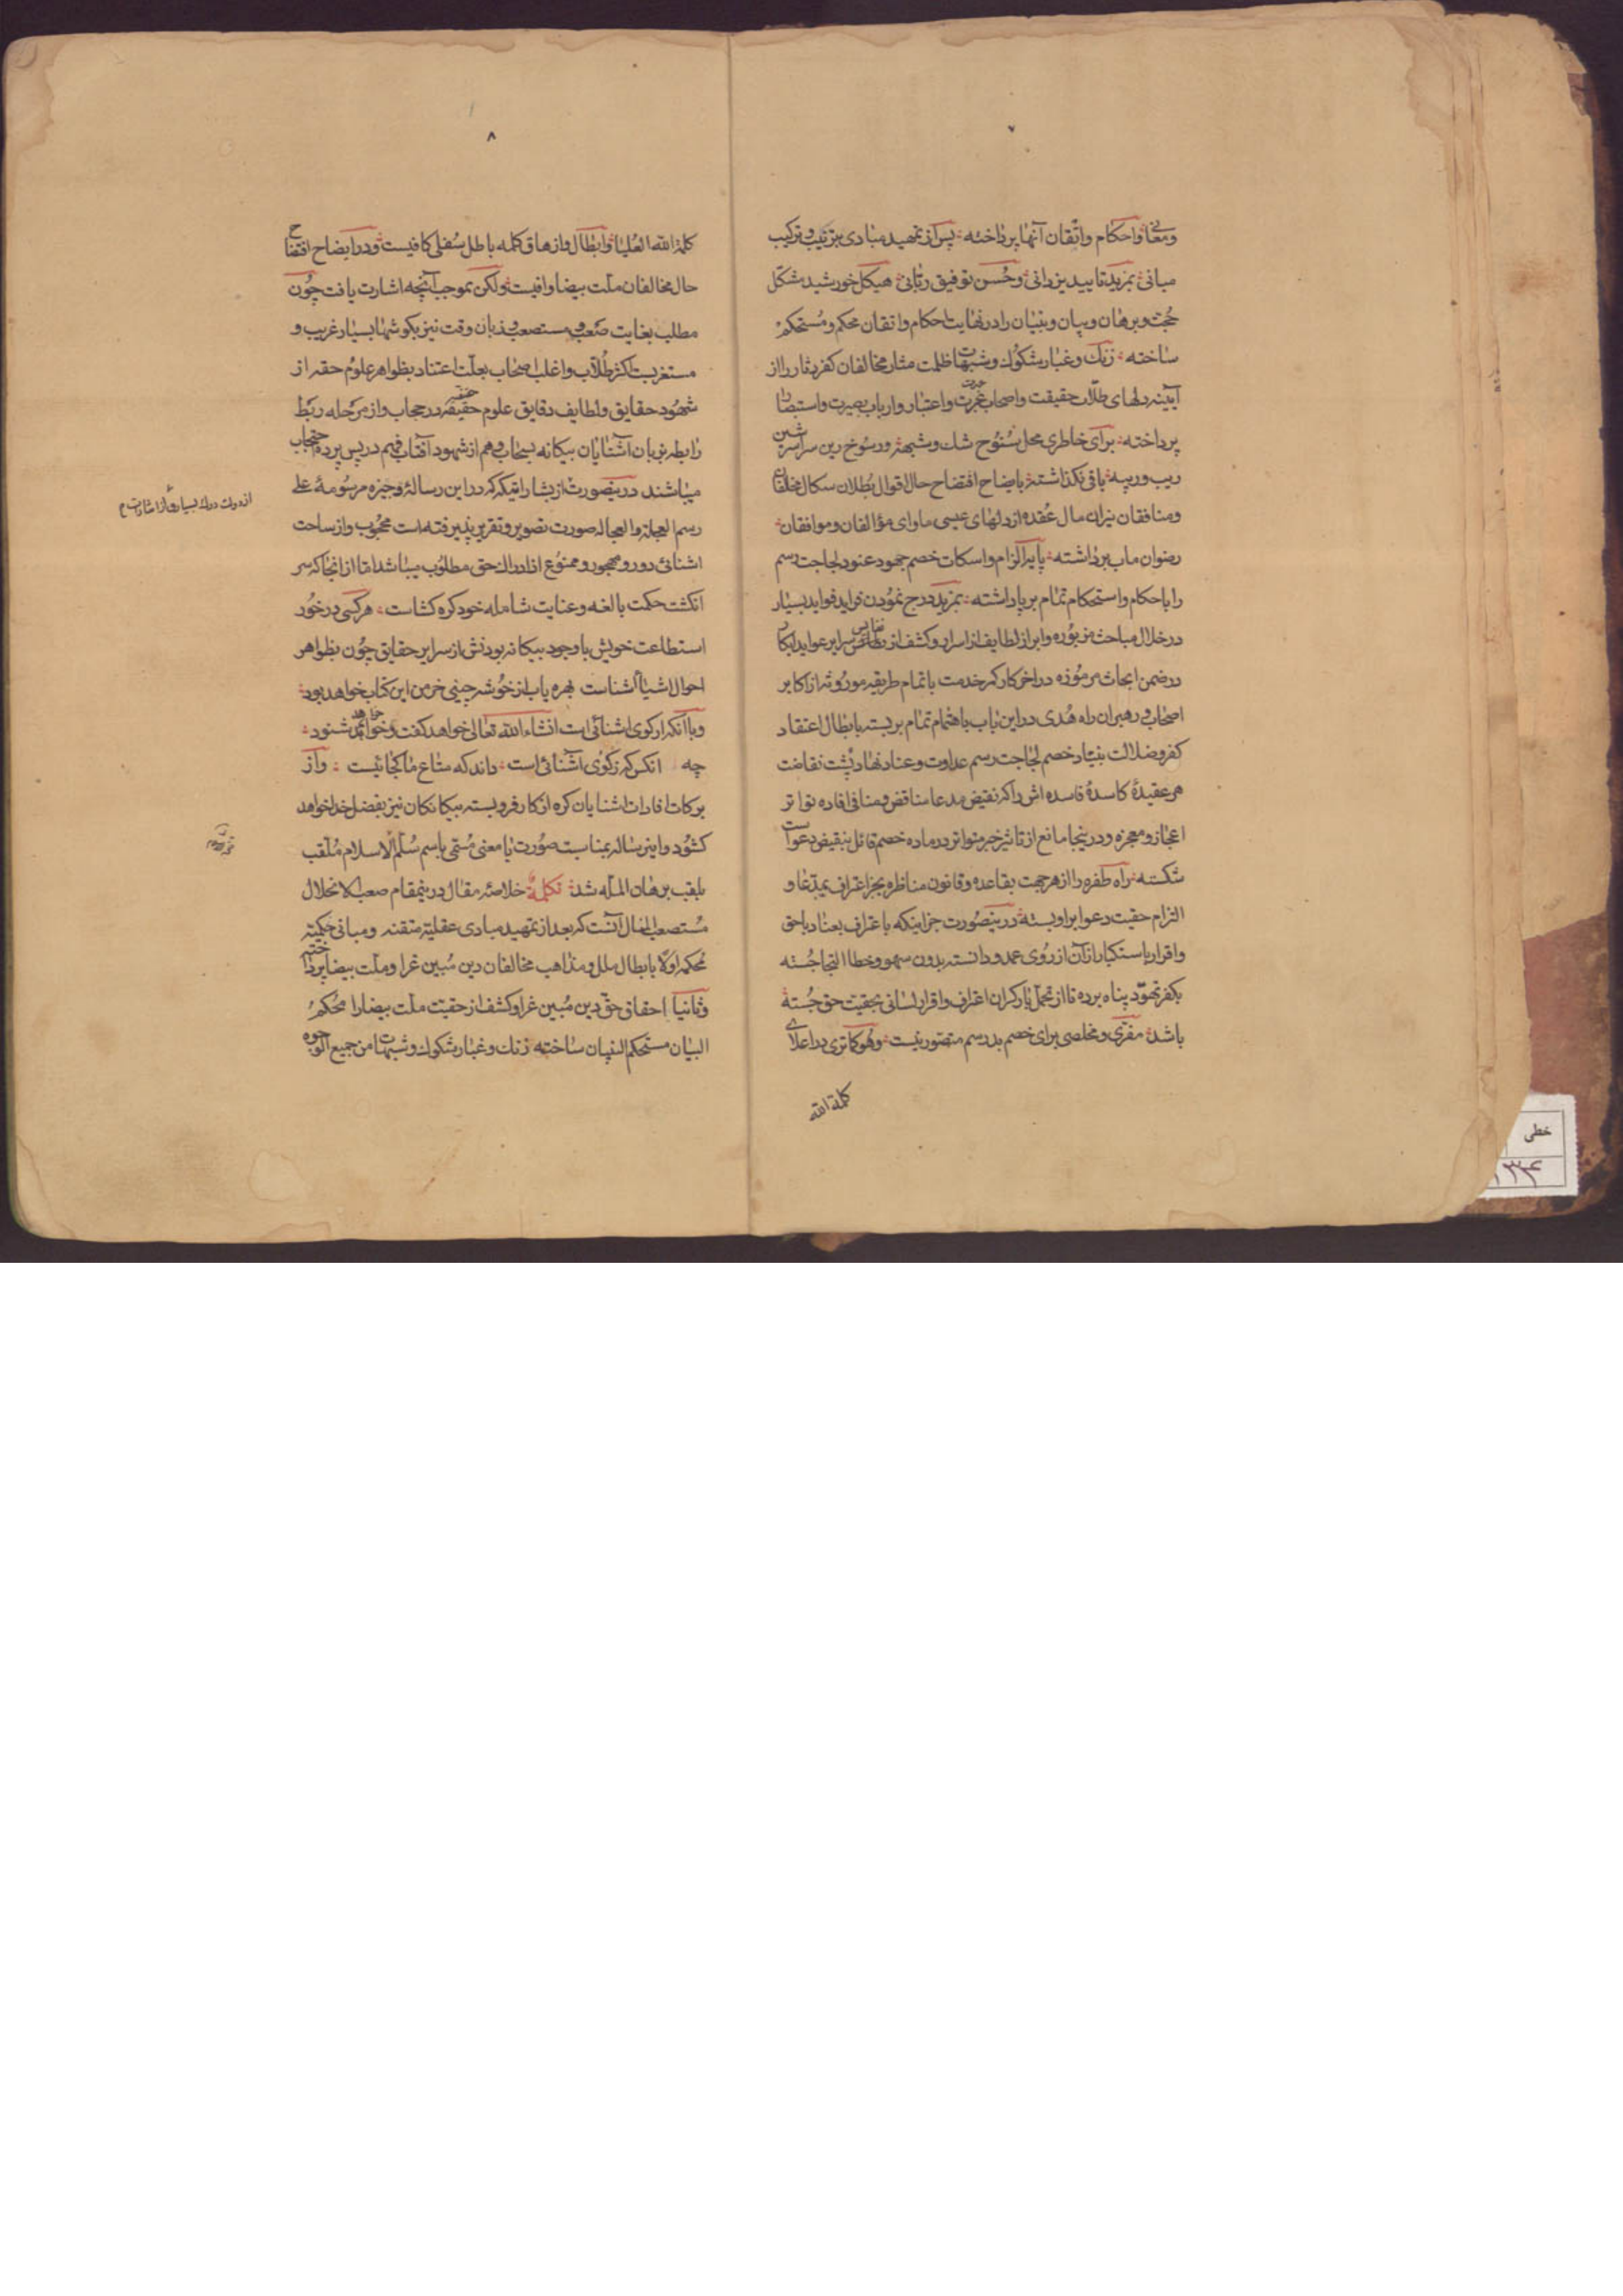 ۷
ومعانی واحکام واتقان آنها پرداخته پس از تمهید مبادی بترتیب و ترکیب
مبانی بمزید تایید یزدانی وحسن توفیق ربانی هیکل خورشید مشکل
حجت وبرهان وبیان وبنیان را در نهایت احکام واتقان محکم و مستحکم
ساخته زنک وغبار شکوک وشبهات ظلمت مثار مخالفان کفر دثار را از
آیینه دلهای طلاب حقیقت واصحاب عبرت واعتبار وارباب بصیرت واستبصار
پرداخته برای خاطری محل سنوح شک وشبهه ورسوخ رین سراسر شین
ریب وریبه باقی نکذاشته بایضاح افتضاح حال اقوال بطلان سکال مخالفان
ومنافقان نیران مال عقده از دلهای عیسی ماوای مؤالفان وموافقان
رضوان ماب برداشته پایه الزام واسکات خصم جهود عنود لجاجت رسم
را باحکام واستحکام تمام بر پا داشته بمزید درج نمودن فراید فواید بسیار
در خلال مباحث مزبوره وابراز لطایف از اسرار وکشف از نفایس سرایر عواید ابکار
در ضمن ابحاث مرموزه در اخر کار کمر خدمت باتمام طریقه موروثه از اکابر
اصحاب ورهبران راه هدی در این باب باهتمام تمام بر بسته بابطال اعتقاد
کفر وضلالت بنیاد خصم لجاجت رسم عداوت وعناد نهاد پشت نقاضت
هر عقیدهٔ کاسدهٔ فاسده اش را که نقیض مدعا مناقض ومنافی افاده تواتر
اعجاز ومعجزه ودر ینجا مانع از تاثیر خبر متواتر در ماده خصم قائل بنقیض دعواست
شکسته راه طفره را از هر جهت بقاعده وقانون مناظره بجز اعتراف بمدعا و
الزام حقیت دعوا بر او بسته در ینصورت جز اینکه با اعتراف بعناد باحق
واقرار باستکبار از آن از روی عمد ودانسته بدون سهو وخطا التجا جسته
بکفر تهود پناه برده تا از تحمل بار کران اعتراف واقرار لسانی بحقیت حق جسته
باشد مفری ومخلصی برای خصم بد رسم متصور نیست وهو کما تری در اعلای
کلمة الله
۸
کلمة الله العلیا وابطال وازهاق کلمه باطل سفلی کافیست ودر ایضاح افتضاح
حال مخالفان ملت بیضا وافیست ولکن بموجب آنچه اشارت یافت چون
مطلب بغایت صعب ومستصعب وزبان وقت نیز بکوشها بسیار غریب و
مستغربست اکثر طلاب واغلب اصحاب بعلت اعتناد بظواهر علوم حقه از
شهود حقایق ولطایف دقایق علوم حقیقیه در حجاب واز مرحله ربط
رابطه بزبان آشنایان بیکانه بسحاب وهم از شهود آفتاب فهم در پس پرده احتجاب
میباشند در ینصورت از بشاراتیکه در این رسالهٔ وجیزه مرسومهٔ علی
رسم العجالة والعجاله صورت تصویر وتقریر پذیرفته است محجوب واز ساحت
اشنائی دور ومهجور وممنوع از ادراک حق مطلوب میباشد اما از انجا که سر
انکشت حکمت بالغه وعنایت شامله خود کره کشاست هر کسی در خور
استطاعت خویش باوجود بیکانه بودنش از سرایر حقایق چون بظواهر
احوال اشیا آشناست بهره یاب از خوشه چینی خرمن این کتاب خواهد بود
وبا آنکه از کوی اشنائی است انشاء الله تعالی خواهد کفت وخواهد شنود
چه انکس که ز کوی آشنائی است داند که متاع ما کجائیست واز
برکات افادات اشنایان کره از کار فرو بسته بیکانکان نیز بفضل خدا خواهد
کشود واینرساله بمناسبت صورت با معنی مسمی باسم سلم الاسلام ملقب
بلقب برهان المله شد تکمله خلاصه مقال در ینمقام صعب الانحلال
مستصعب المنال آنست که بعد از تمهید مبادی عقلیه متقنه ومبانی حکمیه
محکمه اولا بابطال ملل ومذاهب مخالفان دین مبین غرا وملت بیضا پرداخته
وثانیا احقاق حق دین مبین غرا وکشف از حقیت ملت بیضا را محکم
البیان مستحکم البنیان ساخته زنک وغبار شکوک وشبهات من جمیع الوجوه
خطی
۱۳۴